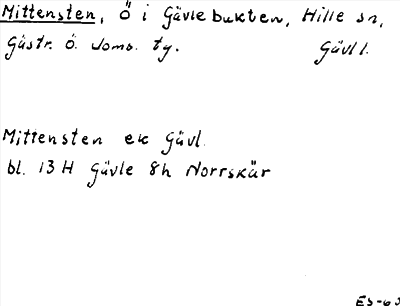 Mittensten, Ö i Gävlebukten, Hille sn,
Gästr. Ö. doms. tg. Gävl l.
Mittensten ek Gävl.
bl. 13 H Gävle 8h Norrskär
ES-63